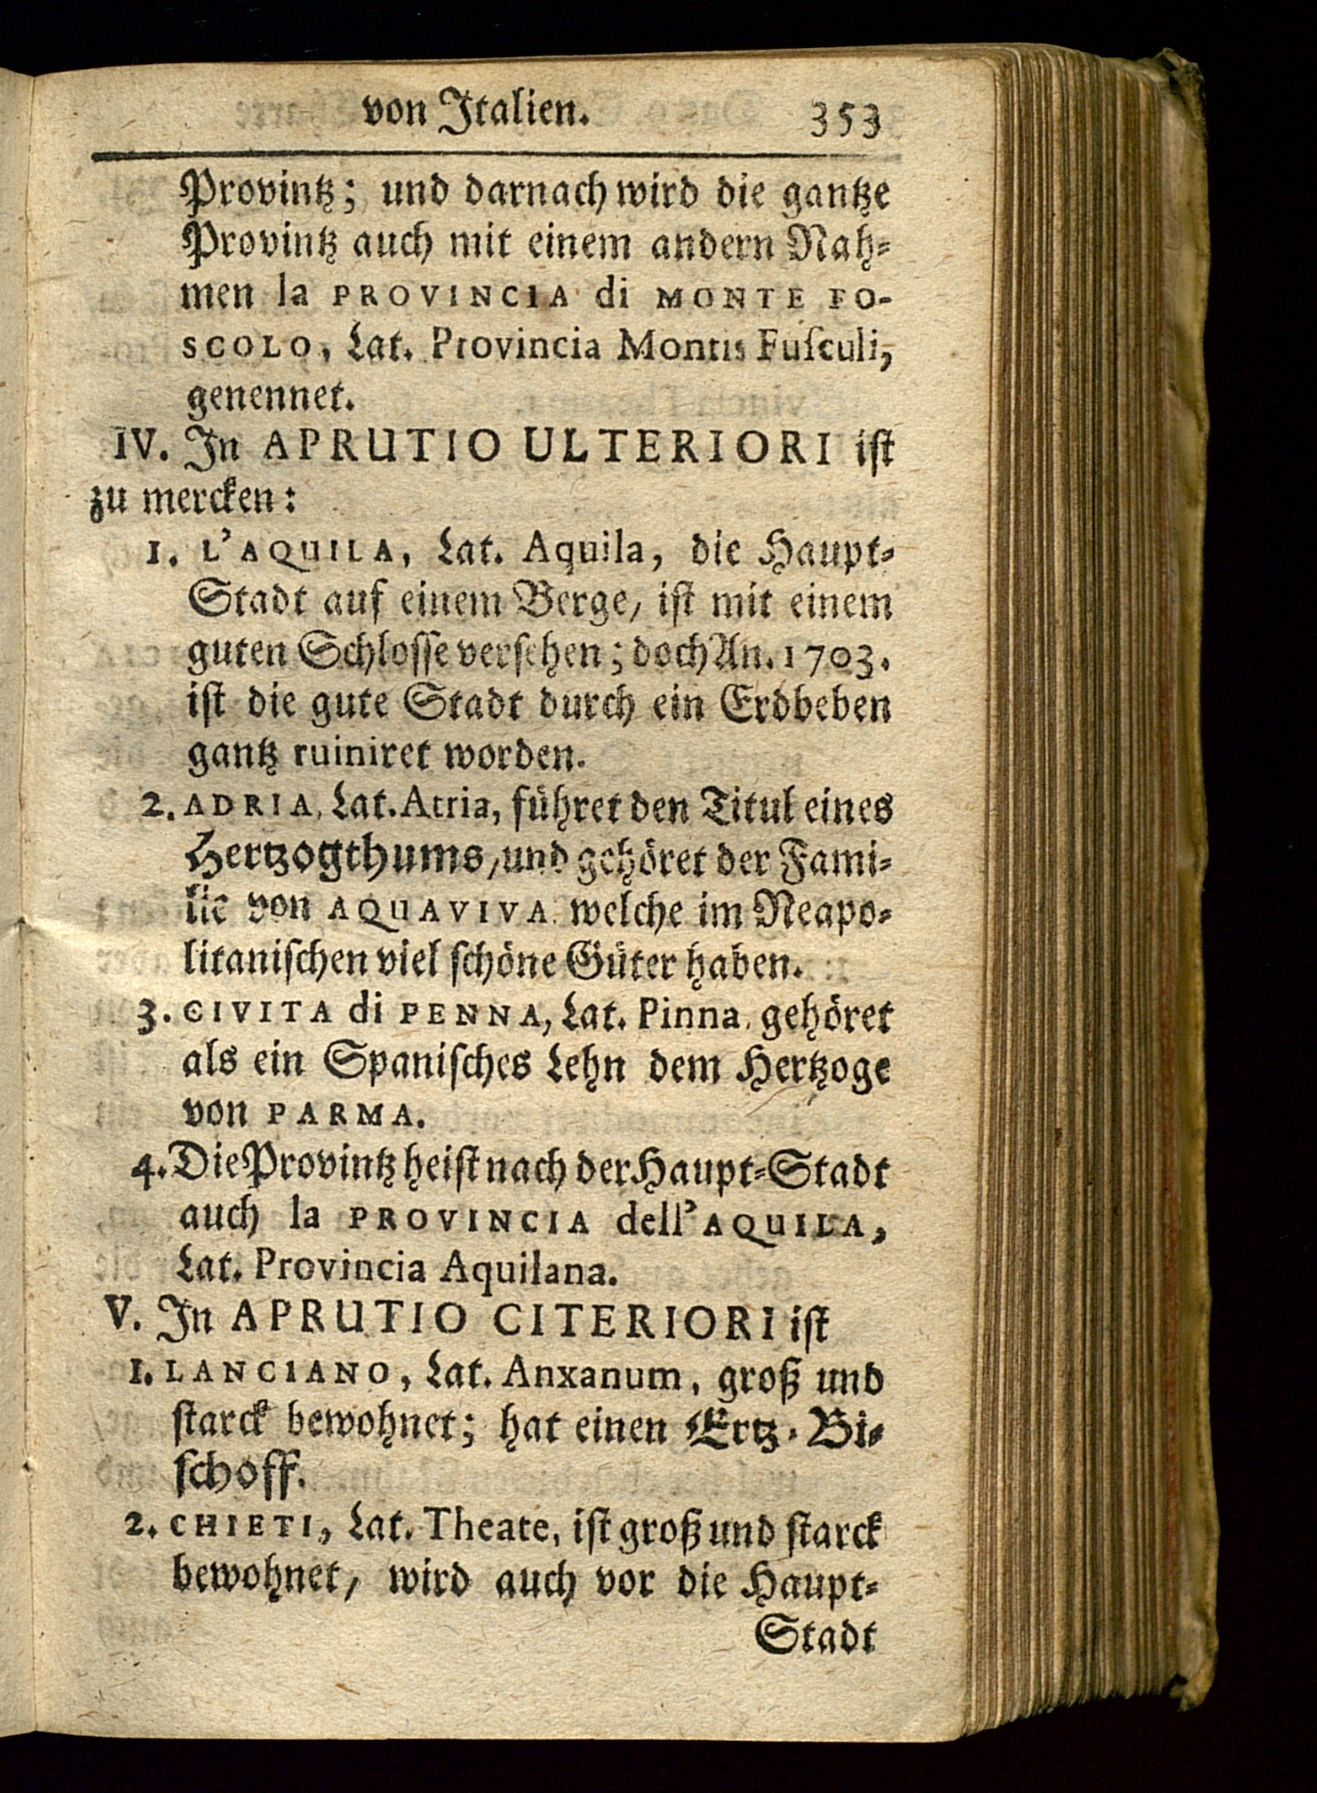 von Italien. 353
Provintz; und darnach wird die gantze
Provintz auch mit einem andern Nah-
men la PROVINCIA di MONTE FO-
SCOLO, Lat. Provincia Montis Fuſculi,
genennet.
IV. In APRUTIO ULTERIORI iſt
zu mercken:
1. L'AQUILA, Lat. Aquila, die Haupt-
Stadt auf einem Berge, iſt mit einem
guten Schloſſe verſehen; doch An. 1703.
iſt die gute Stadt durch ein Erdbeben
gantz ruiniret worden.
2. ADRIA, Lat. Atria, führet den Titul eines
Hertzogthums, und gehöret der Fami-
lie von AQUAVIVA, welche im Neapo-
litaniſchen viel ſchöne Güter haben.
3. CIVITA di PENNA, Lat. Pinna, gehöret
als ein Spaniſches Lehn dem Hertzoge
von PARMA.
4. Die Provintz heiſt nach der Haupt-Stadt
auch la PROVINCIA dell'AQUILA,
Lat. Provincia Aquilana.
V. In APRUTIO CITERIORI iſt
1. LANCIANO, Lat. Anxanum, groß und
ſtarck bewohnet; hat einen Ertz-Bi-
ſchoff.
2. CHIETI, Lat. Theate, iſt groß und ſtarck
bewohnet, wird auch vor die Haupt-
Stadt